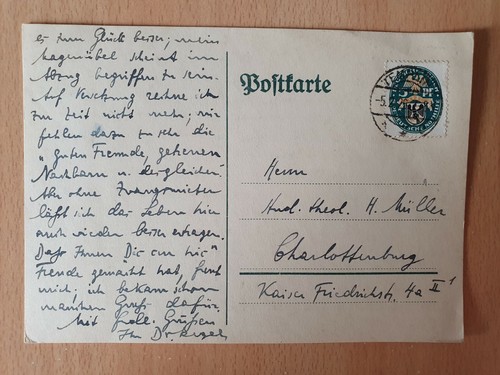 es zum Glück besser; mein
Magenübel scheint im
Abzug begriffen zu sein.
Auf Versetzung rechne ich
zur Zeit nicht mehr; mir
fehlen dazu zu sehr die
"guten Freunde, getreuen
Nachbarn u. dergleichen".
Aber ohne Zwangsmieter
läßt sich das Leben hier
auch wieder besser ertragen.
Daß Ihnen "Dic cur hic"
Freude gemacht hat, freut
mich; ich bekam schon
manchen Gruß dafür.
Mit koll. Grüßen
Ihr Dr.
Postkarte
Herrn
stud. theol. H. Müller
Charlottenburg
Kaiser Friedrichstr. 4a II